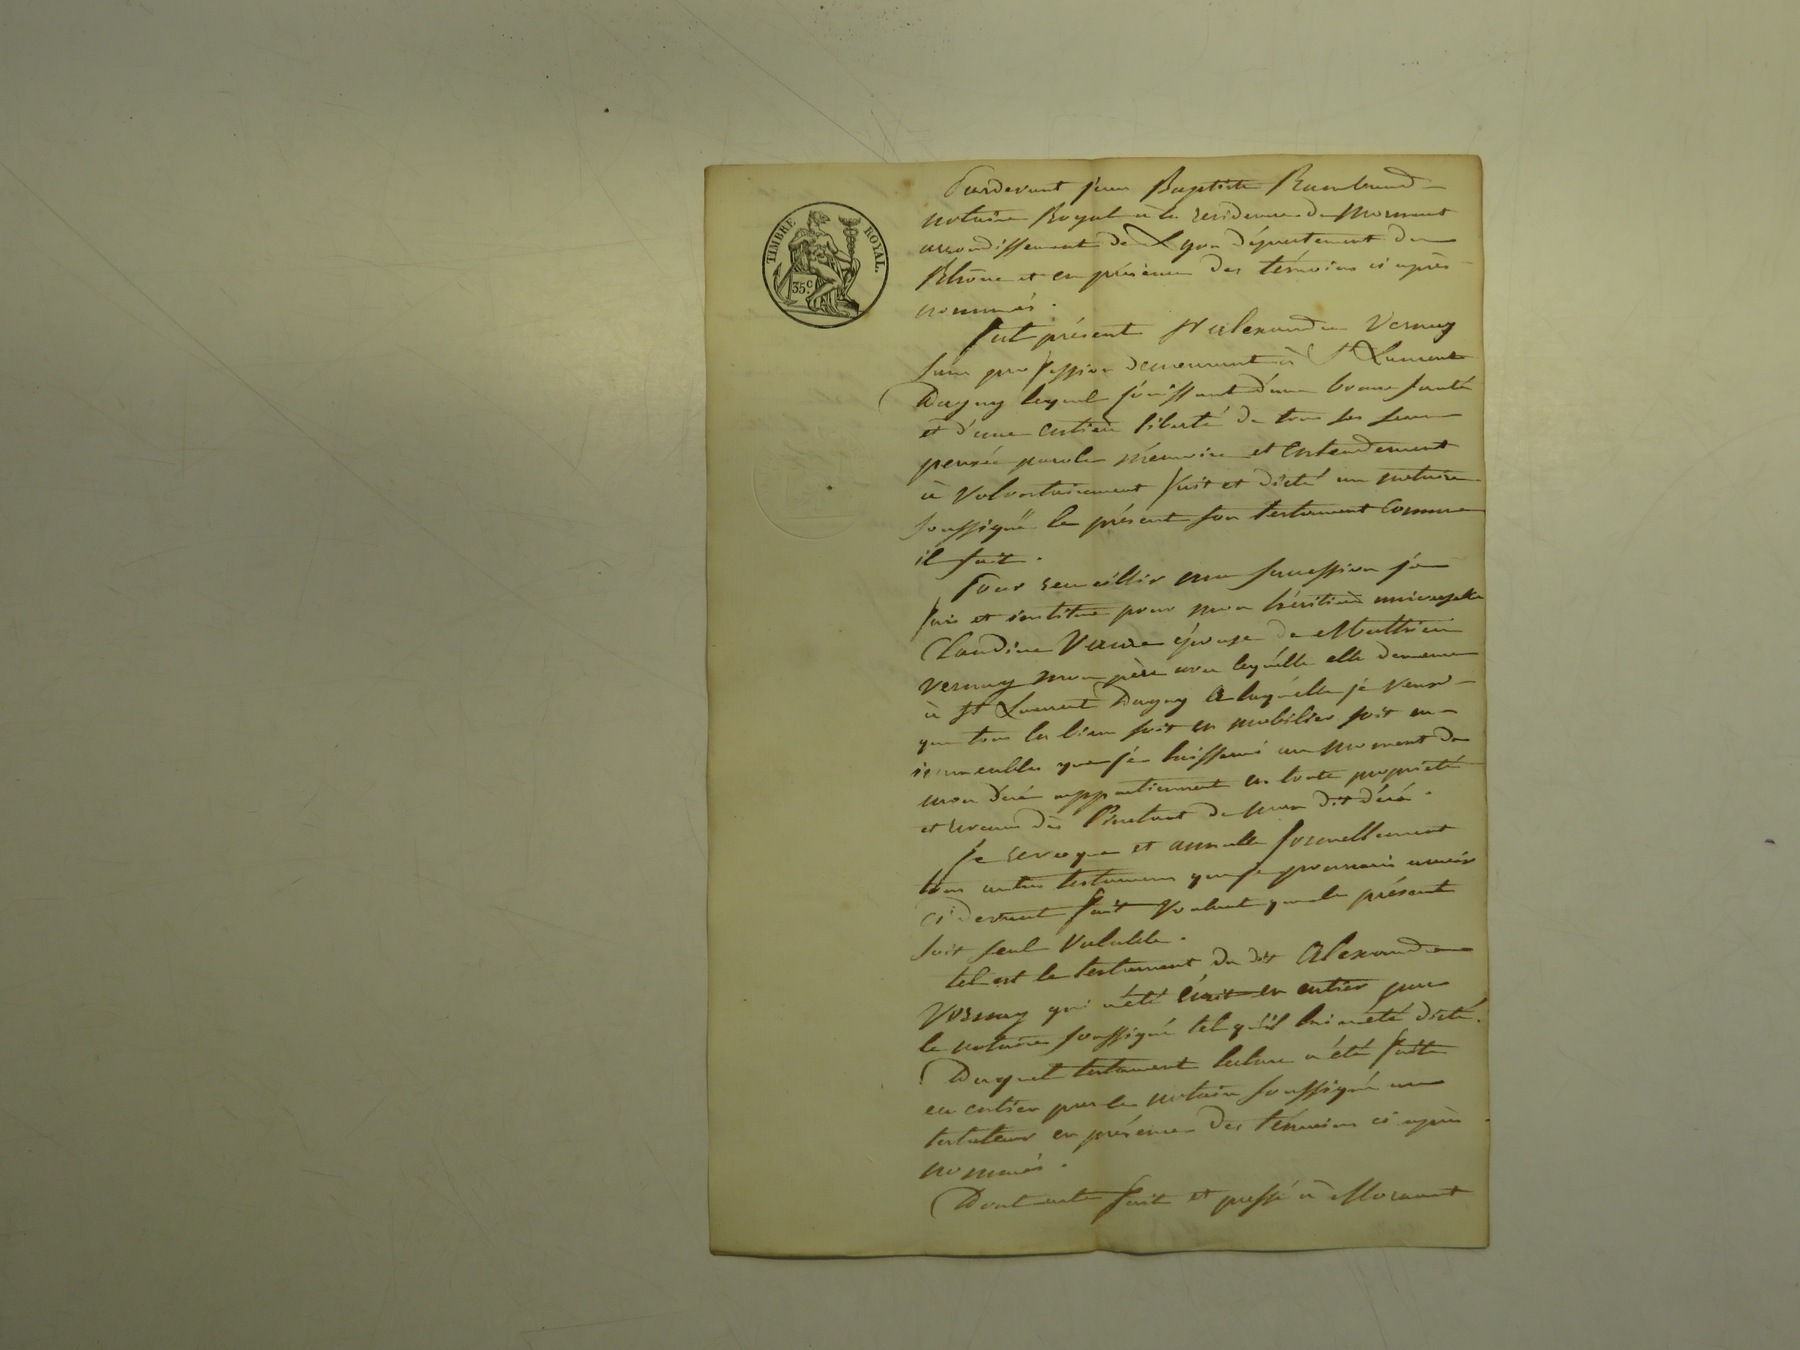 TIMBRE ROYAL.
35 c.
Pardevant jean Baptiste Rambaud
notaire Royal à la residence de Mornant
arrondissement de Lyon département du
Rhône et en présence des témoins ci après
nommés.
fut présent Sr alexandre Vernay
sans profession demeurant à St Laurent
Dagny lequel jouissant d'une bonne santé
et d'une entière liberté de tous ses sens
pensée parole mémoire et entendement
à volontairement fait et dicté au notaire
soussigné le présent son testament comme
il suit.
Pour recueillir ma succession je
fais et institue pour mon héritière universelle
Claudine épouse de Mathieu
Vernay mon père avec lequelle elle demeure
à St Laurent Dagny a laquelle je veux
que tous les biens soit en mobilier soit en
immeubles que je laisserai au moment de
mon décé appartiennent en toute propriété
et dès l'instant de mon dit décé.
Je revoque et annulle formellement
tous autres testamens que je pourrais avoir
ci devant fait voulant que le présent
soit seul valable.
tel est le testament du dit Alexandre
Vernay qui a été écrit en entier par
le notaire soussigné tel qu'il lui a été dicté.
Duquel testament lecture a été faite
en entier par le notaire soussigné au
testateur en présence des témoins ci après
nommés.
Dont acte fait et passé à Mornant